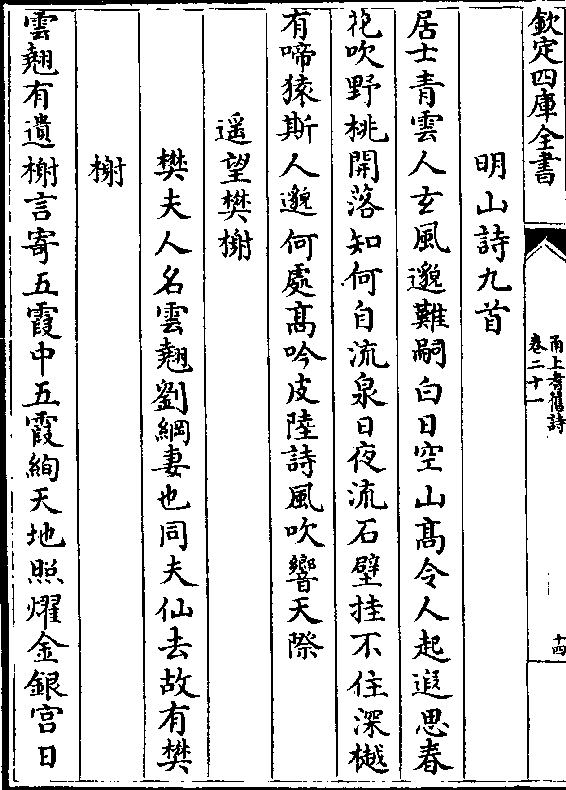 欽定四庫全書
甬上耆舊詩
卷二十一
十四
明山詩九首
居士青雲人玄風邈難嗣白日空山髙令人起遐思春
花吹野桃開落知何自流泉日夜流石壁挂不住深樾
有啼猿斯人邈何處髙吟皮陸詩風吹響天際
遥望樊榭
樊夫人名雲翹劉綱妻也同夫仙去故有樊
榭
雲翹有遺榭言寄五霞中五霞絢天地照耀金銀宫日